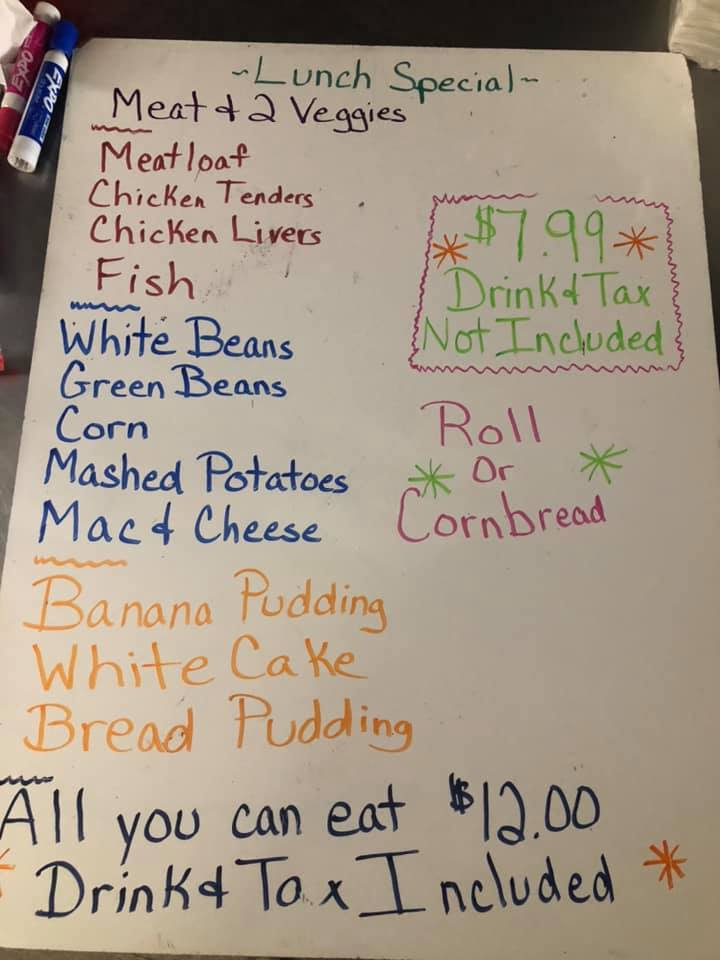 ~Lunch Special~
Meat & 2 Veggies
Meatloaf
Chicken Tenders
Chicken Livers
Fish
$7.99
Drink & Tax
Not Included
White Beans
Green Beans
Corn
Mashed Potatoes
Mac & Cheese
Roll
Or
Cornbread
Banana Pudding
White Cake
Bread Pudding
All you can eat $12.00
Drink & Tax Included
EXPO
EXPO